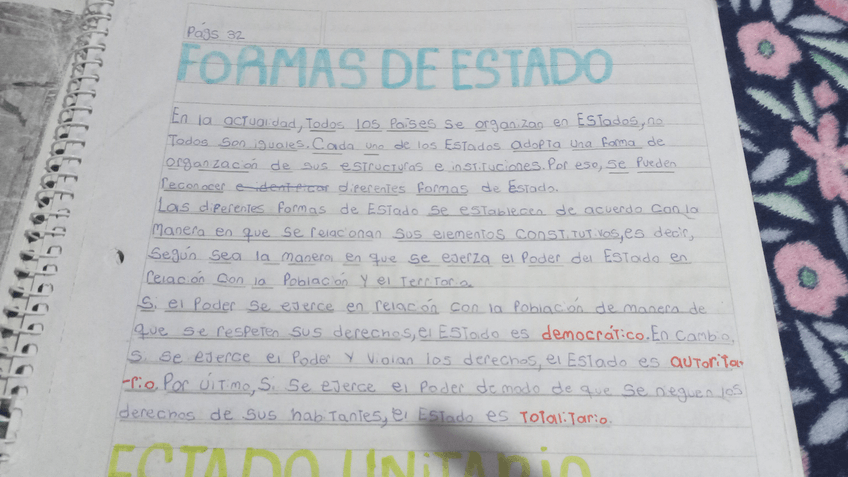 Págs 32
FORMAS DE ESTADO
En la actualidad, Todos los Países se organizan en Estados, no
Todos son iguales. Cada uno de los Estados adopta una forma de
organización de sus estructuras e instituciones. Por eso, se Pueden
reconocer e identificar diferentes formas de Estado.
Las diferentes formas de Estado se establecen de acuerdo con la
Manera en que se relacionan sus elementos constitutivos, es decir,
Según sea la manera en que se ejerza el Poder del Estado en
relación con la Población y el territorio.
Si el Poder se ejerce en relación con la Población de manera de
que se respeten sus derechos, el Estado es democrático. En cambio,
Si se ejerce el Poder y violan los derechos, el Estado es autorita-
-rio. Por último, si se ejerce el Poder de modo de que se nieguen los
derechos de sus habitantes, el Estado es Totalitario.
ESTADO UNITARIO